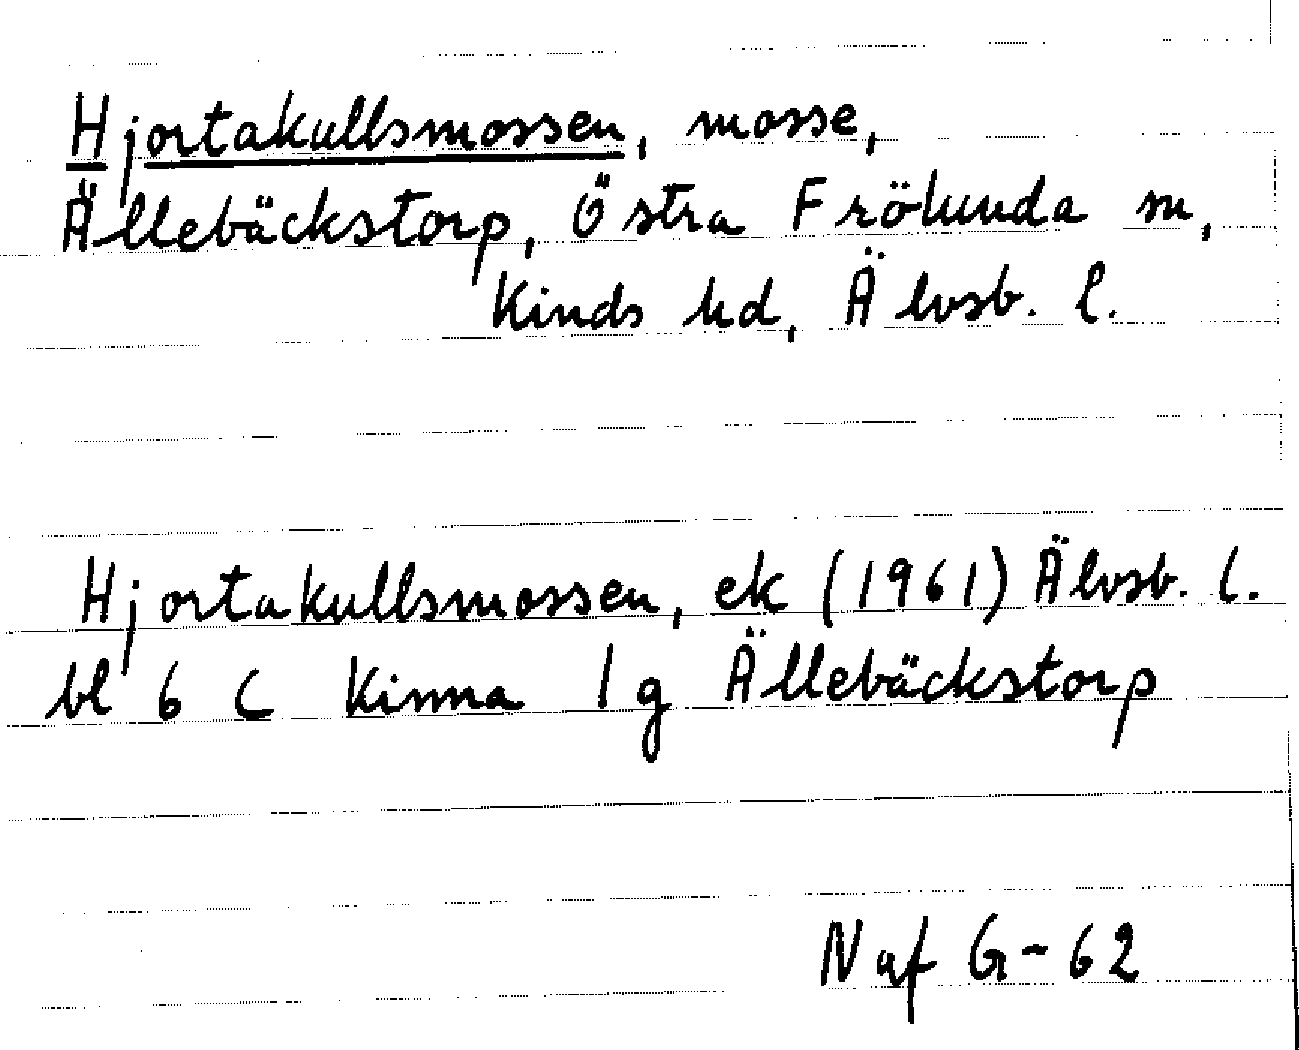 Hjortakullsmossen, mosse,
Ällebäckstorp, Östra Frölunda sn,
Kinds hd, Älvsb. l.
Hjortakullsmossen, ek (1961) Älvsb. l.
bl 6 C Kinna 1 g Ällebäckstorp
Naf G-62